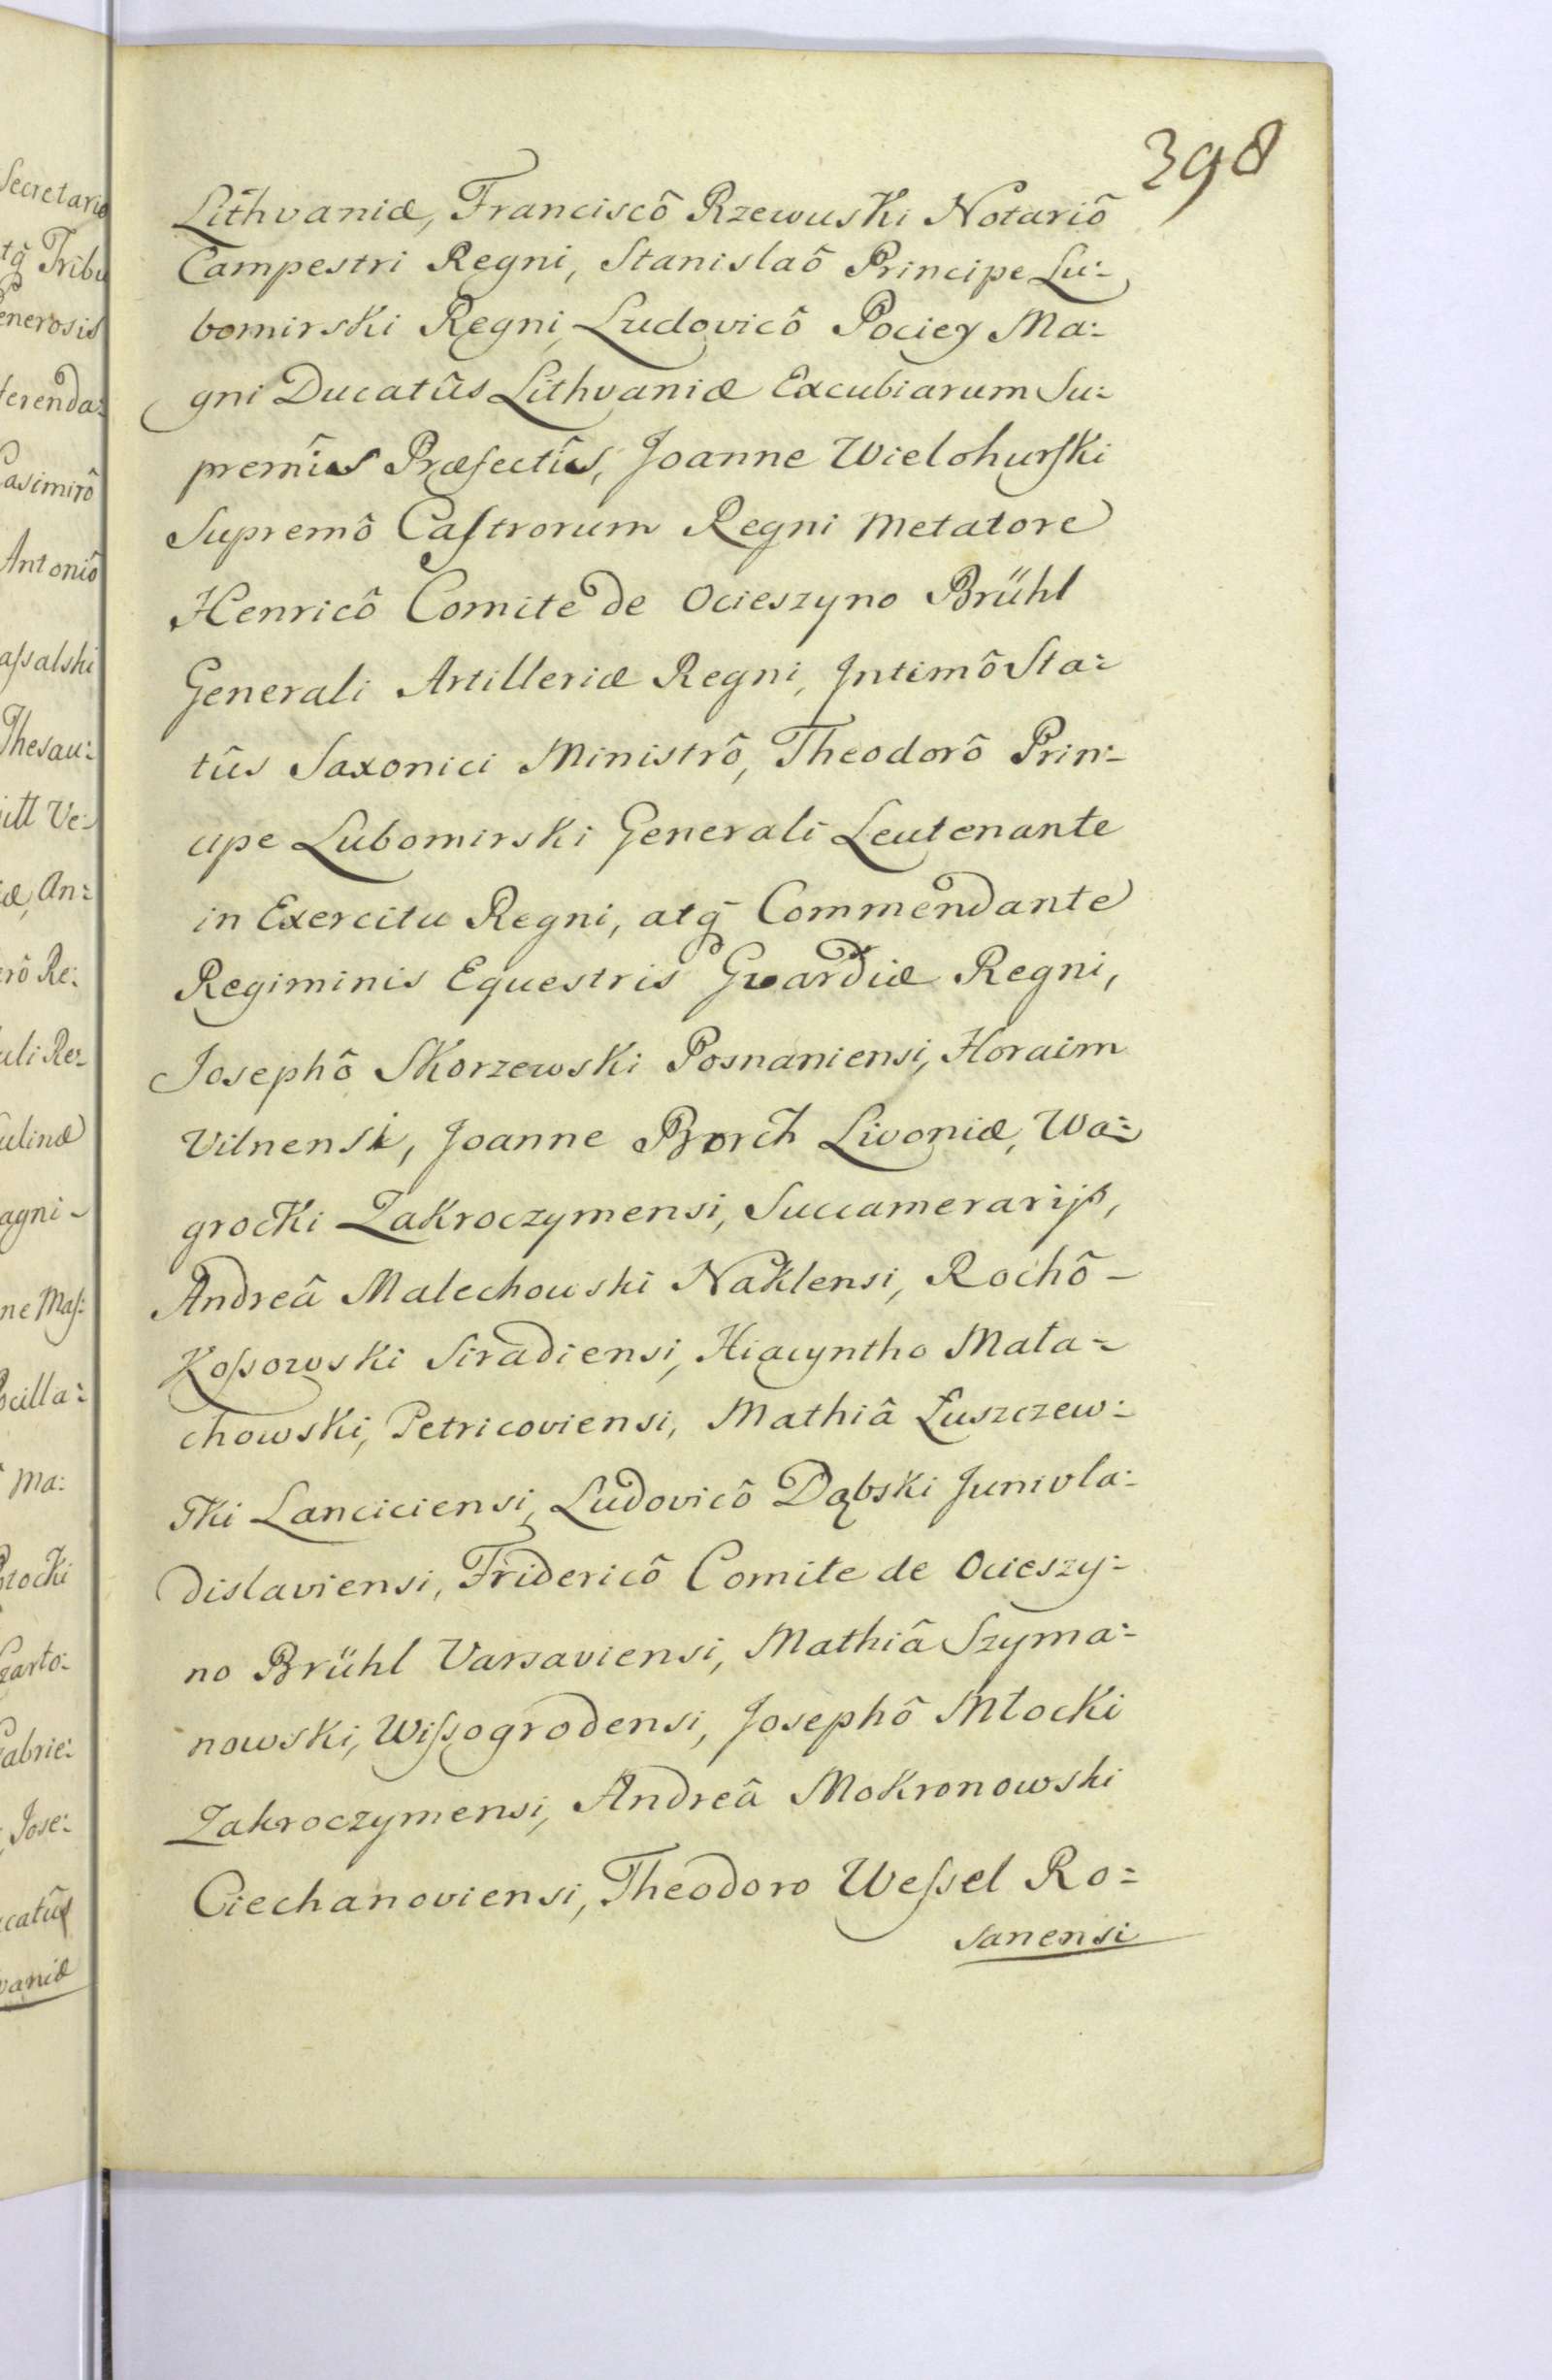 398
Lithvaniæ, Franciscô Rzewuski Notariô
Campestri Regni, Stanislaô Principe Lu:
bomirski Regni, Ludovicô Pociey Ma:
gni Ducatûs Lithvaniæ Excubiarum Su:
premîs Præfectîs, Joanne Wielohurſki
Supremô Caſtrorum Regni Metatore
Henricô Comite de Ocieszyno Brühl
Generali Artilleriæ Regni, Intimô Sta:
tûs Saxonici Ministrô, Theodorô Prin:
cipe Lubomirski Generali Leutenante
in Exercitu Regni, atq̃ Commendante
Regiminis Equestris Gvardiæ Regni,
Josephô Skorzewski Posnaniensi, Horaim
Vilnensi, Joanne Borch Livoniæ, Wa:
grocki Zakroczymensi, Succamerarijs,
Andreâ Malechowski Naklensi, Rochô -
Koſsowski Siradiensi, Hiacyntho Mała:
chowski, Petricoviensi, Mathiâ Łuszczew:
ski Lanciciensi, Ludovicô Dąbski Junivla:
dislaviensi, Fridericô Comite de Ocieszy:
no Brühl Varsaviensi, Mathiâ Szyma:
nowski, Wiſsogrodensi, Josephô Młocki
Zakroczymensi, Andreâ Mokronowski
Ciechanoviensi, Theodoro Weſsel Ro:
sanensi